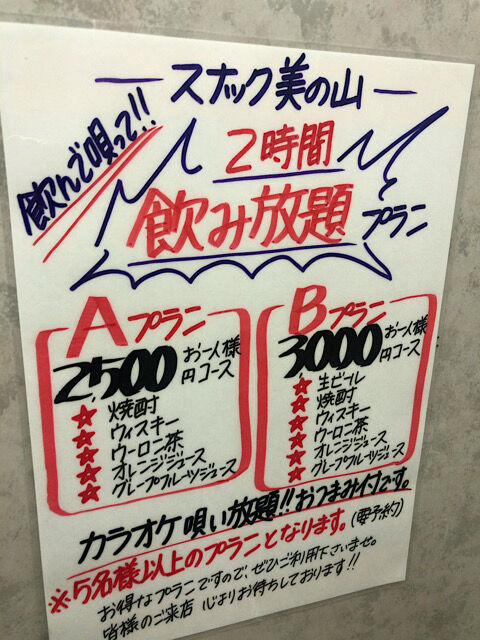 スナック美の山
飲んで唄って!!
2時間
飲み放題プラン
Aプラン
2,500お一人様円コース
☆焼酎
☆ウィスキー
☆ウーロン茶
☆オレンジジュース
☆グレープフルーツジュース
Bプラン
3000お一人様円コース
☆生ビール
☆焼酎
☆ウィスキー
☆ウーロン茶
☆オレンジジュース
☆グレープフルーツジュース
カラオケ唄い放題!!おつまみ付です。
※5名様以上のプランとなります。(要予約)
お得なプランですので、ぜひご利用下さいませ。
皆様のご来店 心よりお待ちしております!!